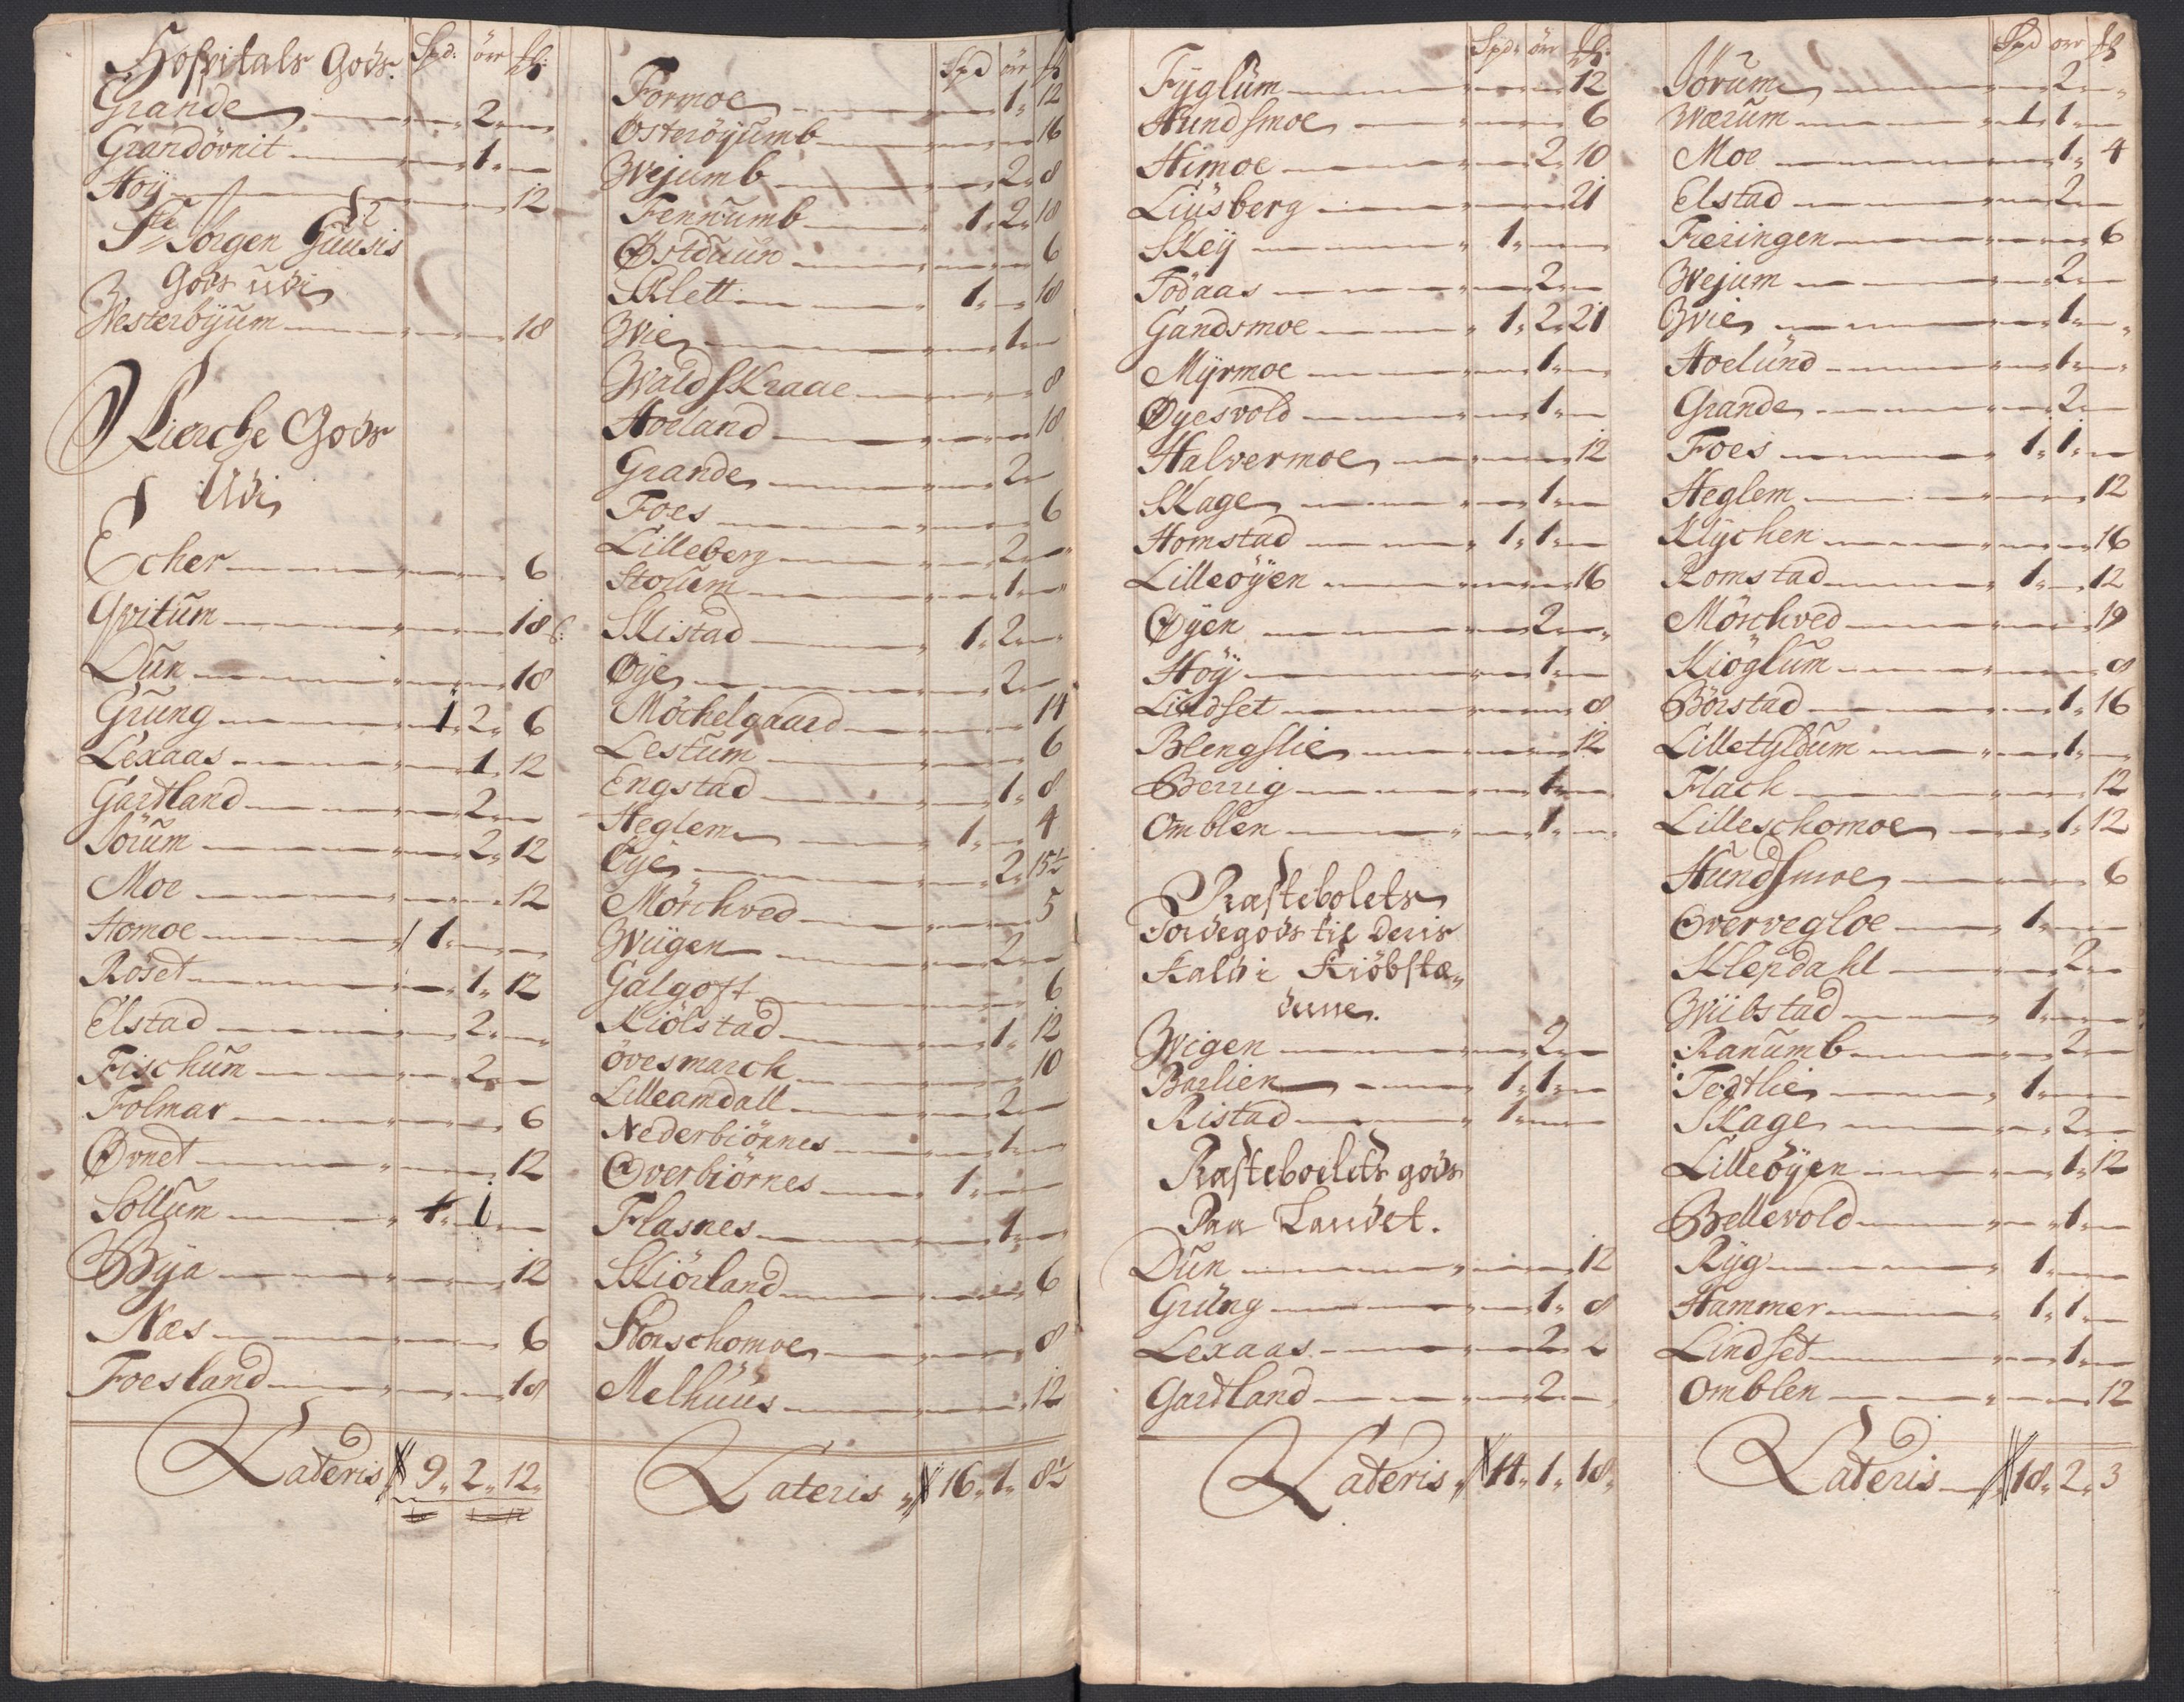 Hospitals Gods. Spd: ör ß:
Grande 2
Grandövnit 1
Höÿ 12
Ste Jörgen Huusis
Gods udi
Westerbÿum 18
Kierche Gods
Udi
Echer 6
Qvitum 18
Dun 18
Grung 1 2 6
Lexaas 1 12
Gartland 2
Jörum 2 12
Moe 12
Homoe 1
Röset 1 12
Elstad 2
Fischum 2
Folmar 6
Øvnet 12
Sollum 1
Bÿa 12
Næs 6
Foesland 18
Lateris 9 2 12
Spd ör ß
Formoe 1 12
Österöÿumb 16
Wejumb 2 8
Fennumb 1 2 18
Østduun 6
Klett 1 18
Wie 1
Waldskraae 8
Hoeland 18
Grande 2
Foes 6
Lilleberg 2
Storum 1
Skistad 1 2
Øye 2
Möchelgaard 14
Lestum 6
Engstad 1 8
Heglem 1 4
Øye 2 15½
Mörchved 5
Wiigen 2
Galgoft 6
Kiölstad 1 12
Övesmarck 10
Lilleamdall 2
Nederbiörnes 1
Overbiörnes 1
Flasnes 1
Skiörland 6
Storschomoe 8
Melhuus 12
Lateris 16 1 8½
Spd: ör ß:
Fÿglum 12
Hundsmoe 6
Himoe 2 10
Liusberg 21
Skeÿ 1
Födaas 2
Gandsmoe 1 2 21
Mÿrmoe 1
Øyesvold 1
Halvermoe 12
Skage 1
Homstad 1 1
Lilleöÿen 16
Øÿen 2
Höÿ 1
Lindset 8
Blengslie 12
Berrig 1
Omblen 1
Præstebolets
Jordegods til deris
Kald i Kiöbstæ-
derne.
Wigen 2
Barlien 1 1
Ristad 1
Præsteboelets gods
Paa Landet.
Dun 12
Grung 1 8
Lexaas 2 2
Gartland 2
Lateris 14 1 18
Spd ör ß
Jörum 2
Wærum 1 1
Moe 1 4
Elstad 2
Fieringen 6
Wejum 2
Wie 1
Hoelund 1
Grande 2
Foes 1 1
Heglem 12
Klÿchen 16
Romstad 1 12
Mörchved 19
Kiöglum 8
Börstad 1 16
Lilletyldum 1
Flack 12
Lilleschomoe 1 12
Hundsmoe 6
Overvegloe 1
Klepdahl 2
Wiibstad 1
Ranumb 2
Tedtlie 1
Skage 2
Lilleöÿen 1 12
Bellevold 1
Rÿg 1
Hammer 1 1
Lindset 1
Omblen 12
Lateris 18 2 3